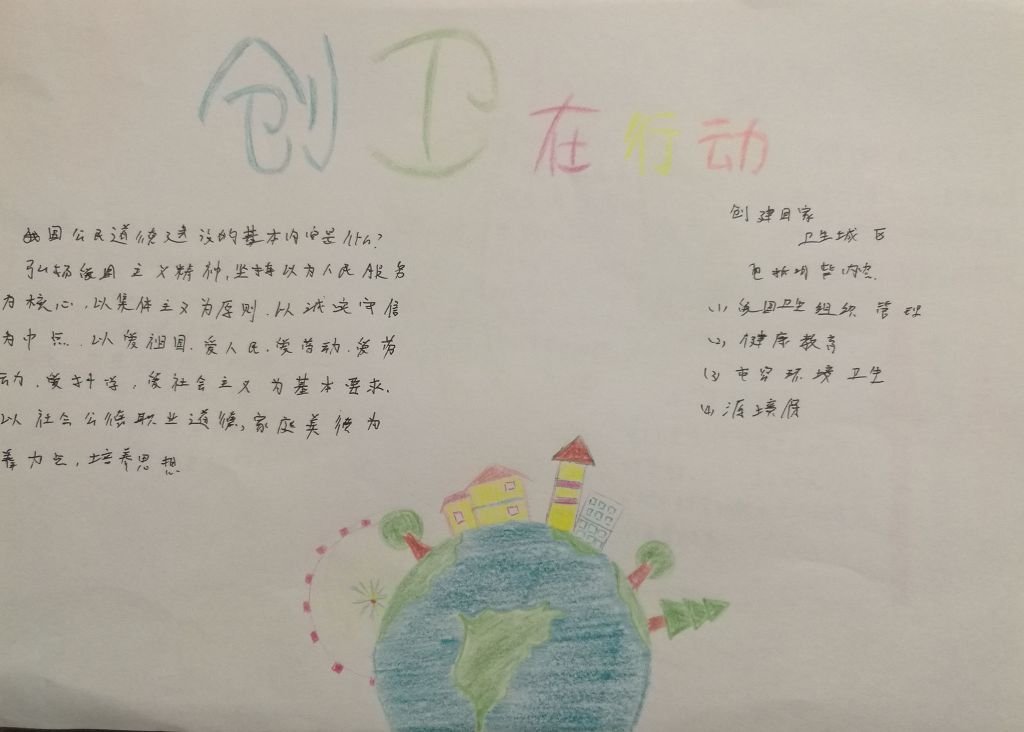 创卫在行动
我国公民道德建设的基本内容是什么?
弘扬爱国主义精神,坚持以为人民服务
为核心,以集体主义为原则.以诚实守信
为中点.以爱祖国.爱人民.爱劳动.爱劳
动.爱科学,爱社会主义为基本要求.
以社会公德职业道德,家庭美德为
着力点,培养思想
创建国家
卫生城区
包括内容
(1)爱国卫生组织管理
(2)健康教育
(3)市容环境卫生
(4)环境保